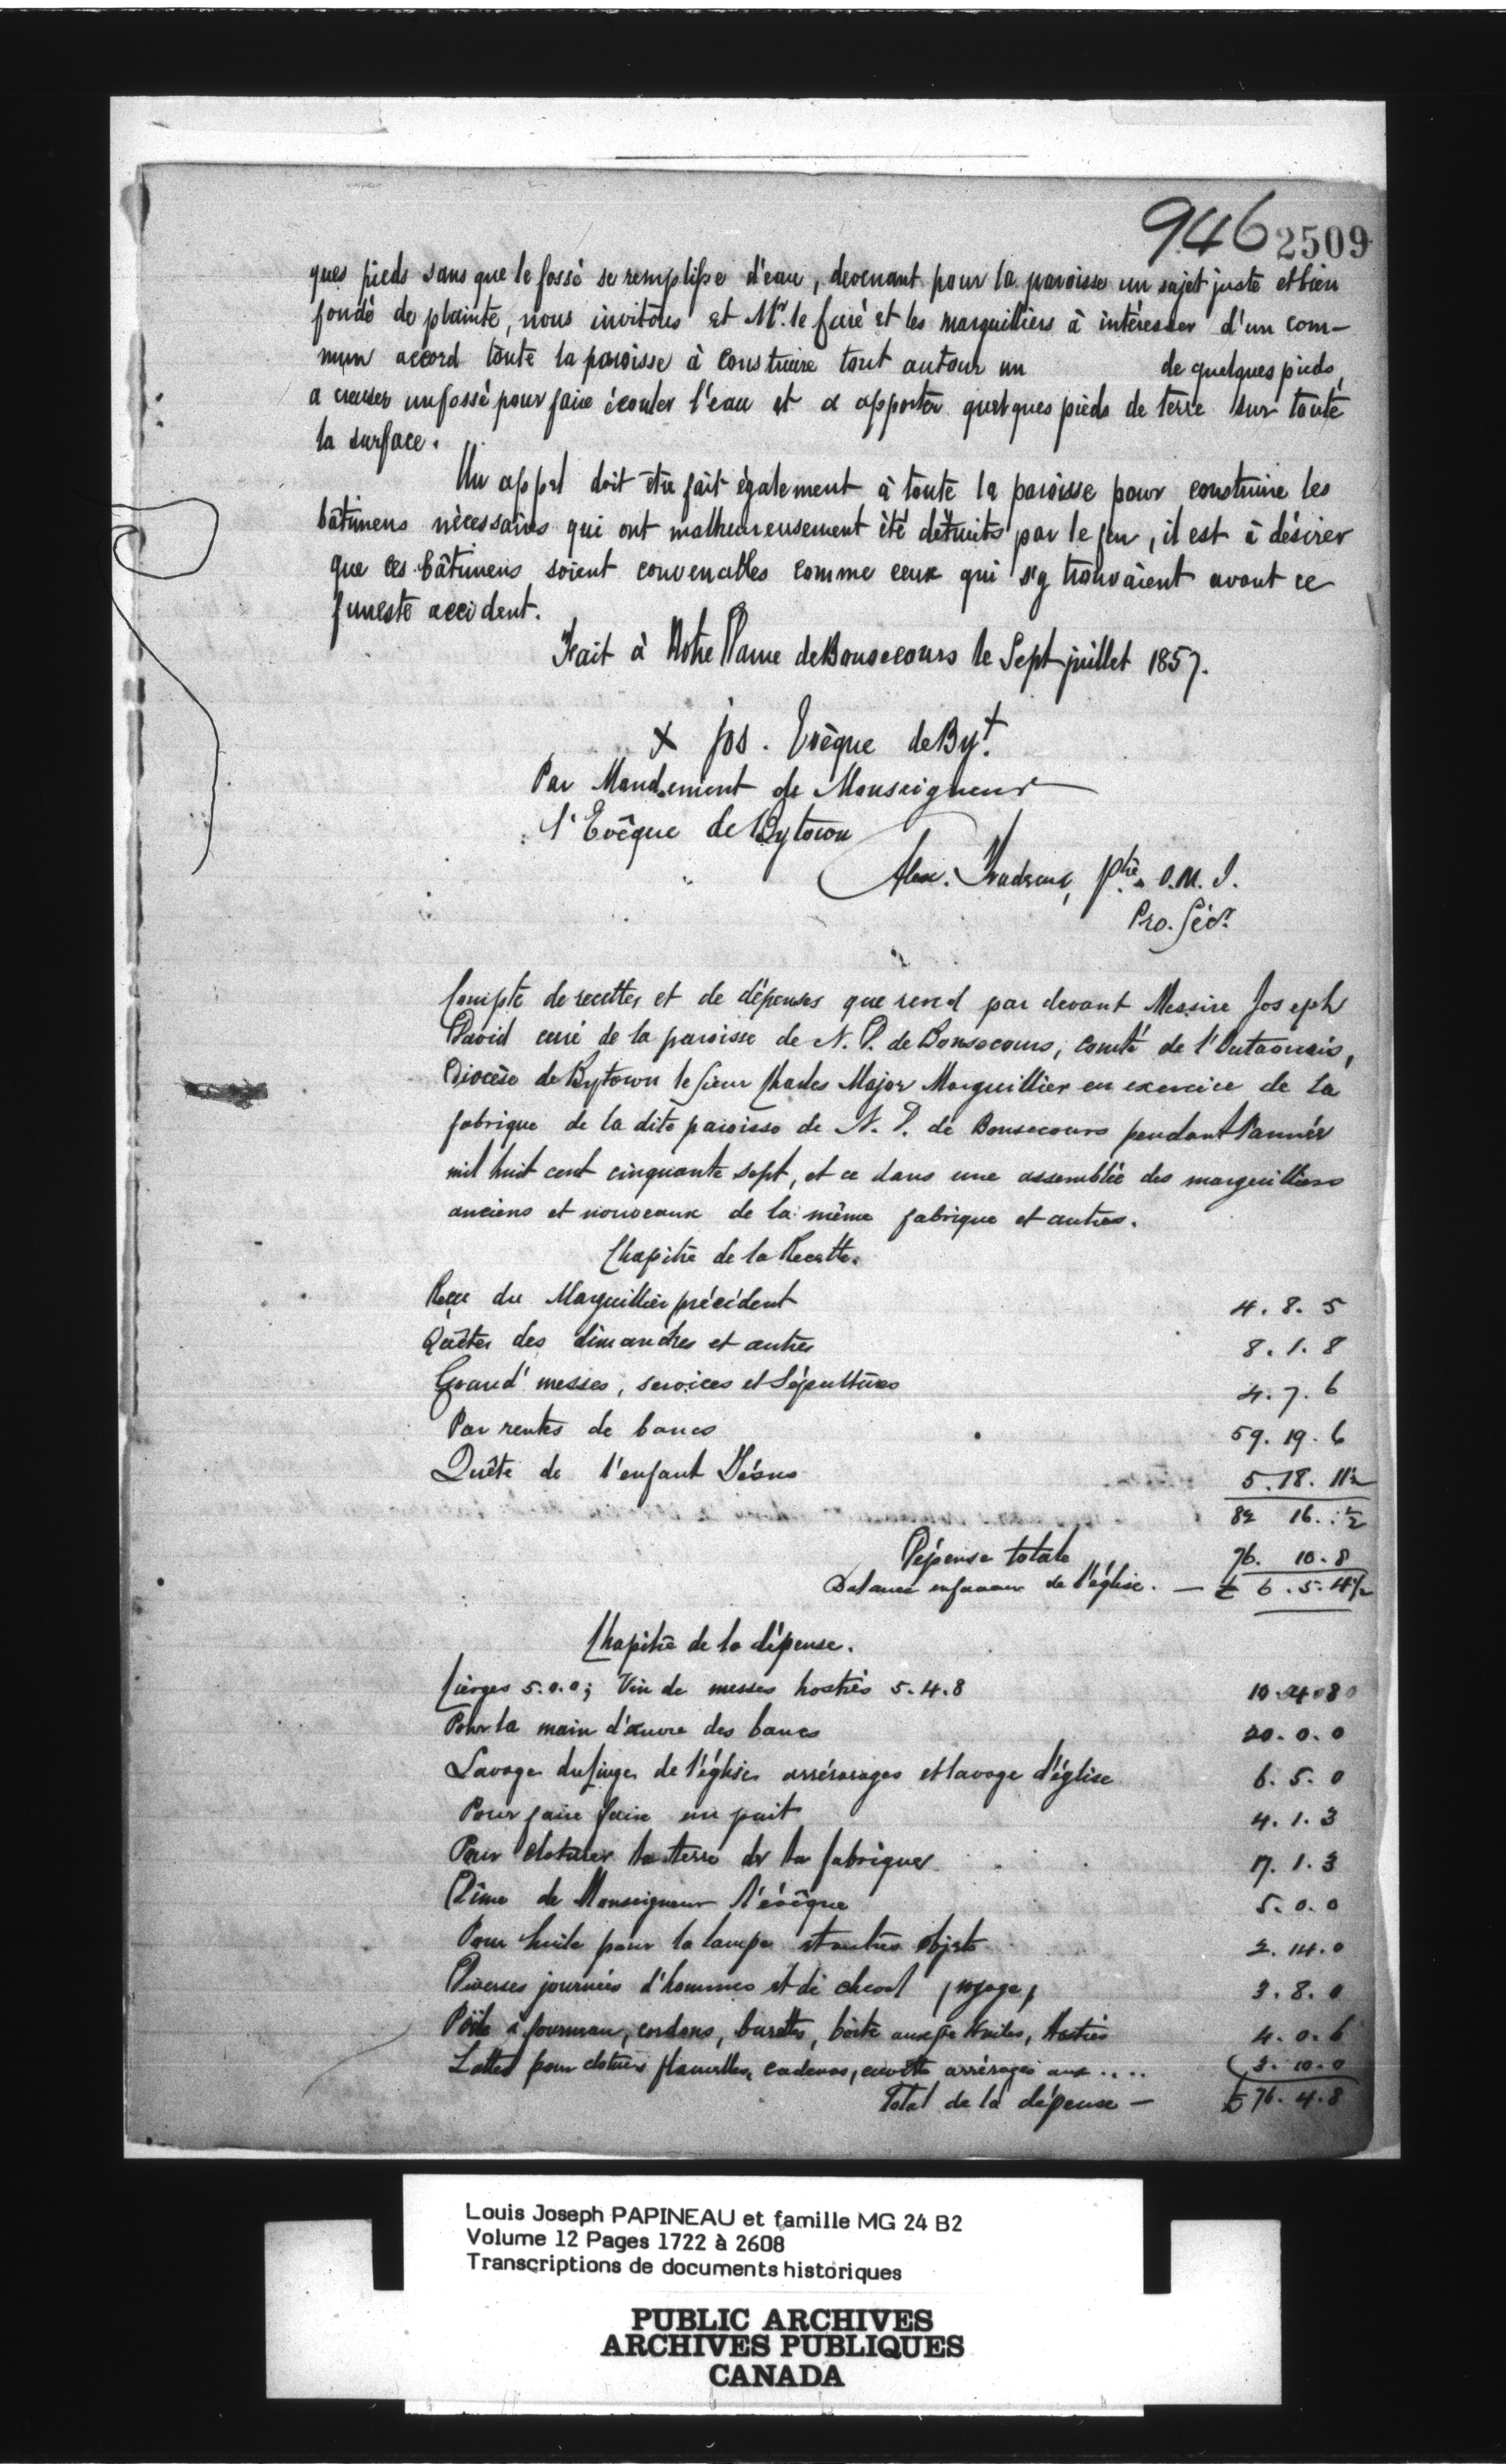 946 2509
ques pieds sans que le fossé se remplisse d'eau, devenant pour la paroisse un sujet juste et bien
fondé de plainte, nous invitons et Mr. le Curé et les marguilliers à intéresser d'un com-
mun accord toute la paroisse à construire tout autour un de quelques pieds,
a creuser un fossé pour faire écouler l'eau et a apporter quelques pieds de terre sur toute
la surface.
Un appel doit être fait également à toute la paroisse pour construire les
bâtimens nécessaires qui ont malheureusement été détruits par le feu, il est à désirer
que ces bâtimens soient convenables comme ceux qui s'y trouvaient avant ce
funeste accident.
Fait à Notre Dame de Bonsecours le Sept juillet 1857.
+ Jos. Evêque de Byt.
Par Mandement de Monseigneur
l'Evêque de Bytown
Alex. Ptre. O.M.I.
Pro. Séc.
Compte de recettes et de dépenses que rend par devant Messire Joseph
David curé de la paroisse de N. D. de Bonsecours, comté de l'Outaouais,
Diocèse de Bytown le Sieur Charles Major Marguillier en exercice de la
fabrique de la dite paroisse de N. D. de Bonsecours pendant l'année
mil huit cent cinquante sept, et ce dans une assemblée des marguilliers
anciens et nouveaux de la même fabrique et autres.
Chapitre de la Recette.
Reçu du Marguillier précédent 4. 8. 5
Quêtes des dimanches et autres 8. 1. 8
Grand' messes, services et Sépultures 4. 7. 6
Par rentes de bancs 59. 19. 6
Quête de l'enfant Jésus 5. 18. 11½
82 16. ½
Dépense totale 76. 10. 8
Balance en faveur de l'église. — £ 6. 5. 4½
Chapitre de la dépense.
Cierges 5.0.0; Vin de messes hosties 5.4.8 10. 4. 8
Pour la main d'œuvre des bancs 20. 0. 0
Lavage du linge de l'église arrérarages et lavage d'église 6. 5. 0
Pour faire faire un puit 4. 1. 3
Pour cloturer la terre de la fabrique 17. 1. 3
Dîme de Monseigneur l'évêque 5. 0. 0
Pour huile pour la lampe et autres objets 2. 14. 0
Diverses journées d'hommes et de cheval 3. 8. 0
Poële à fourneau, cordons, burettes, boîte aux Stes Huiles, Hosties 4. 0. 6
Lattes pour cloture flanelles, cadenas, cuvette arrérages aux .... 3. 10. 0
Total de la dépense — £ 76. 4. 8
Louis Joseph PAPINEAU et famille MG 24 B2
Volume 12 Pages 1722 à 2608
Transcriptions de documents historiques
PUBLIC ARCHIVES
ARCHIVES PUBLIQUES
CANADA